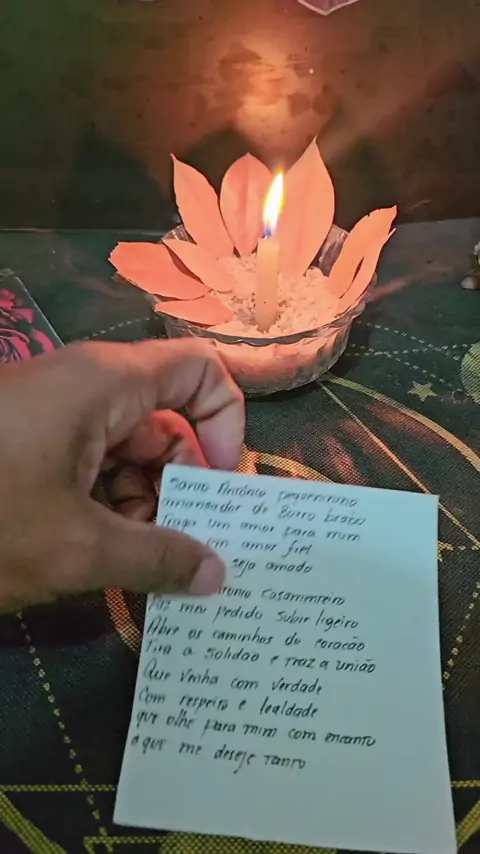 Santo Antônio pequeninino
amansador de Burro brabo
Traga um amor para mim
um amor fiel
seja amado
Antonio Casamenteiro
Faz meu pedido subir ligeiro
Abre os caminhos do coração
Tira a solidão e Traz a união
Que venha com verdade
Com respeito e lealdade
que olhe para mim com encanto
e que me deseje Tanto